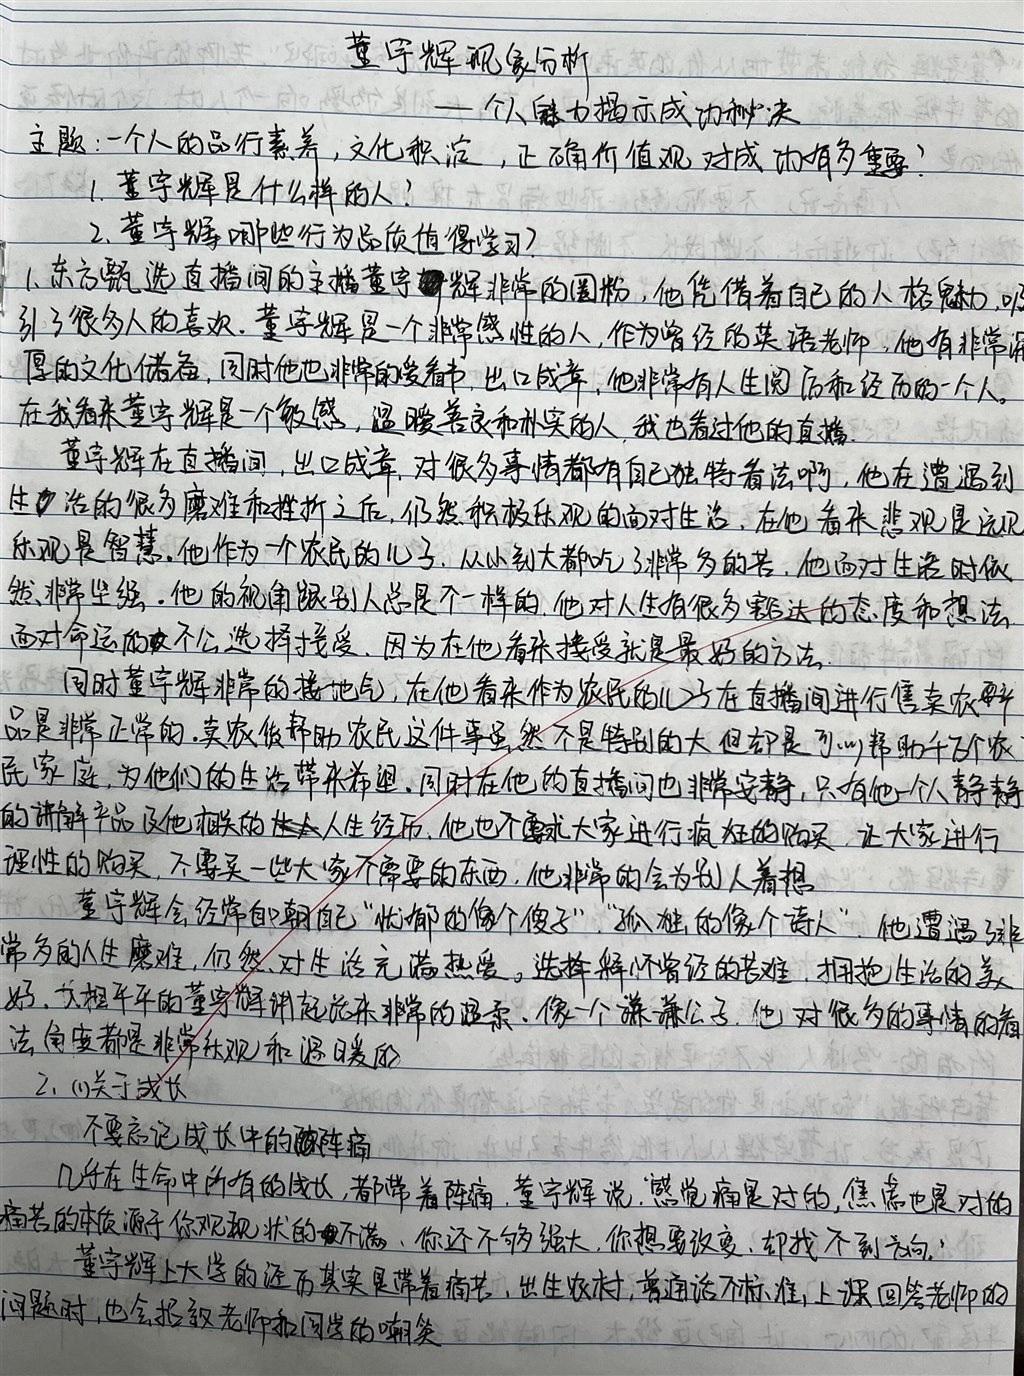 董宇辉现象分析
——个人魅力揭示成功秘决
主题：一个人的品行素养，文化积淀，正确价值观对成功有多重要？
1. 董宇辉是什么样的人？
2. 董宇辉哪些行为品质值得学习？
1. 东方甄选直播间的主播董宇辉非常的圈粉，他凭借着自己的人格魅力，吸
引了很多人的喜欢．董宇辉是一个非常感性的人，作为曾经的英语老师，他有非常深
厚的文化储备，同时他也非常的爱看书，出口成章，他非常有人生阅历和经历的一个人。
在我看来董宇辉是一个敏感，温暖善良和朴实的人，我也看过他的直播．
董宇辉在直播间，出口成章，对很多事情都有自己独特看法啊，他在遭遇到
生活的很多磨难和挫折之后，仍然积极乐观的面对生活，在他看来悲观是远见
乐观是智慧．他作为一个农民的儿子，从小到大都吃了非常多的苦，他面对生活时依
然非常坚强．他的视角跟别人总是不一样的，他对人生有很多豁达的态度和想法
面对命运的不公选择接受，因为在他看来接受就是最好的方法．
同时董宇辉非常的接地气，在他看来作为农民的儿子在直播间进行售卖农
品是非常正常的．卖农货帮助农民这件事虽然不是特别的大但却是可以帮助千百个农
民家庭，为他们的生活带来希望．同时在他的直播间也非常安静，只有他一个人静静
的讲解产品及他相关的人生经历，他也不要求大家进行疯狂的购买，让大家进行
理性的购买，不要买一些大家不需要的东西，他非常的会为别人着想
董宇辉会经常自嘲自己“忧郁的像个傻子”“孤独的像个诗人”，他遭遇了非
常多的人生磨难，仍然对生活充满热爱。选择释怀曾经的苦难，拥抱生活的美
好、长相平平的董宇辉讲起话来非常的温柔．像一个谦谦公子，他对很多的事情的看
法角度都是非常乐观和温暖的
2. (1)关于成长
不要忘记成长中的阵痛
几乎在生命中所有的成长，都带着阵痛，董宇辉说，“感觉痛是对的，焦虑也是对的
痛苦的本质源于你观现状的不满，你还不够强大，你想要改变，却找不到方向．”
董宇辉上大学的经历其实是带着痛苦，出生农村，普通话不标准，上课回答老师的
问题时，也会招致老师和同学的嘲笑